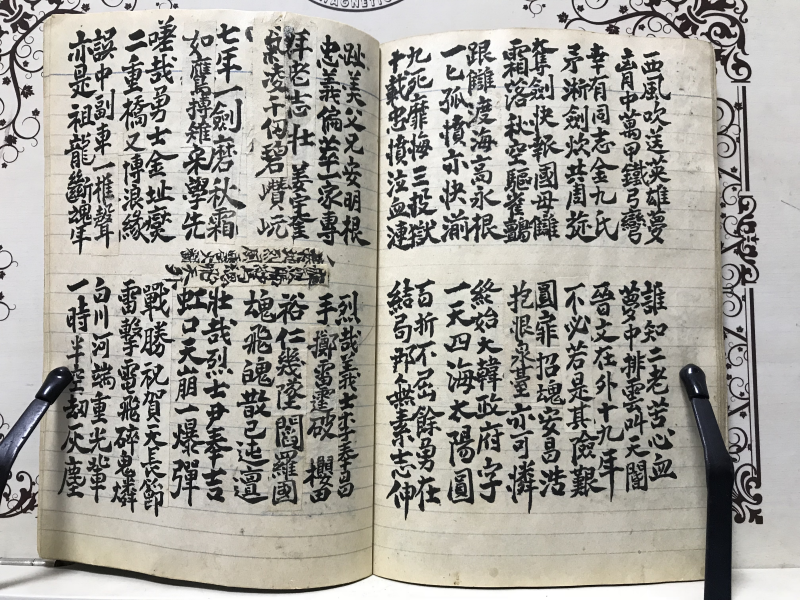 MAGNETIC
西風吹送英雄夢
胷中萬甲鐵弓彎
幸有同志金九氏
矛淅劍炊共周旋
奪劍快報國母讎
霜落秋空驅雀鸇
跟讎度海高永根
一匕孤憤亦快湔
九死靡悔三投獄
十載忠憤泣血漣
誰知二老苦心血
夢中排雲叫天閽
晉文在外十九年
不必若是其險艱
圓霏招魂安昌浩
抱恨泉臺亦可憐
終始大韓政府字
一天四海太陽圓
百折不屈餘勇在
結局那無素志伸
趾美父兄安明根
忠義倫萃一家專
拜老志壯 姜宇奎
氣凌千仞碧巑岏
七年一劍磨秋霜
如鷹搏雉宋學先
嗟哉勇士金址燮
二重橋又博浪緣
誤中副車一椎聲
亦是祖龍斷魂年
烈哉義士李奉昌
手擲雷霆破 櫻田
裕仁幾墜閻羅國
魂飛魄散已迍邅
壯哉烈士尹奉吉
虹口天崩一爆彈
戰勝祝賀天長節
雷擊雷飛碎鬼燐
白川河端重光輩
一時半空劫灰塵